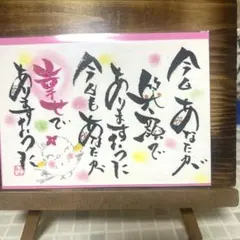 今日あなたが
笑顔で
ありますように
今日もあなたが
幸せで
ありますように